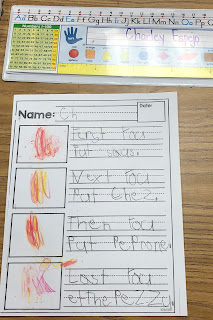 Aa Bb Cc Dd Ee Ff Gg Hh Ii Jj Kk Ll Mm Nn Oo Pp
Name: Ch
Date:
First You
Put sous.
Next You
Put Chez.
Then You
Put PePnone.
Last You
et the Pezzu.